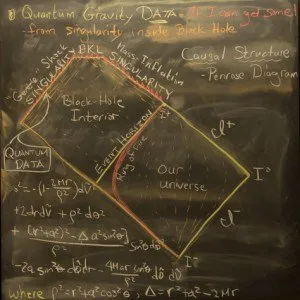 Quantum Gravity DATA = If I can get some
- from singularity inside Black Hole
Causal Structure
- Penrose Diagram
BKL
Mass Inflation
SINGULARITY
Shock
SINGULARITY
Black-Hole
Interior
QUANTUM
DATA
EVENT HORIZON
Ring of Fire
Our
universe
i⁺
I⁺
I°
I⁻
i⁻
ds²= -(1- 2Mr/ρ²)dv²
+2drdv + ρ²dθ²
+ [(r²+a²)² - Δa²sin²θ]/ρ² sin²θdφ²
-2a sin²θ dφdr - 4Mar sin²θ/ρ² dφ dv
where ρ²=r²+a²cos²θ, Δ=r²+a²-2Mr